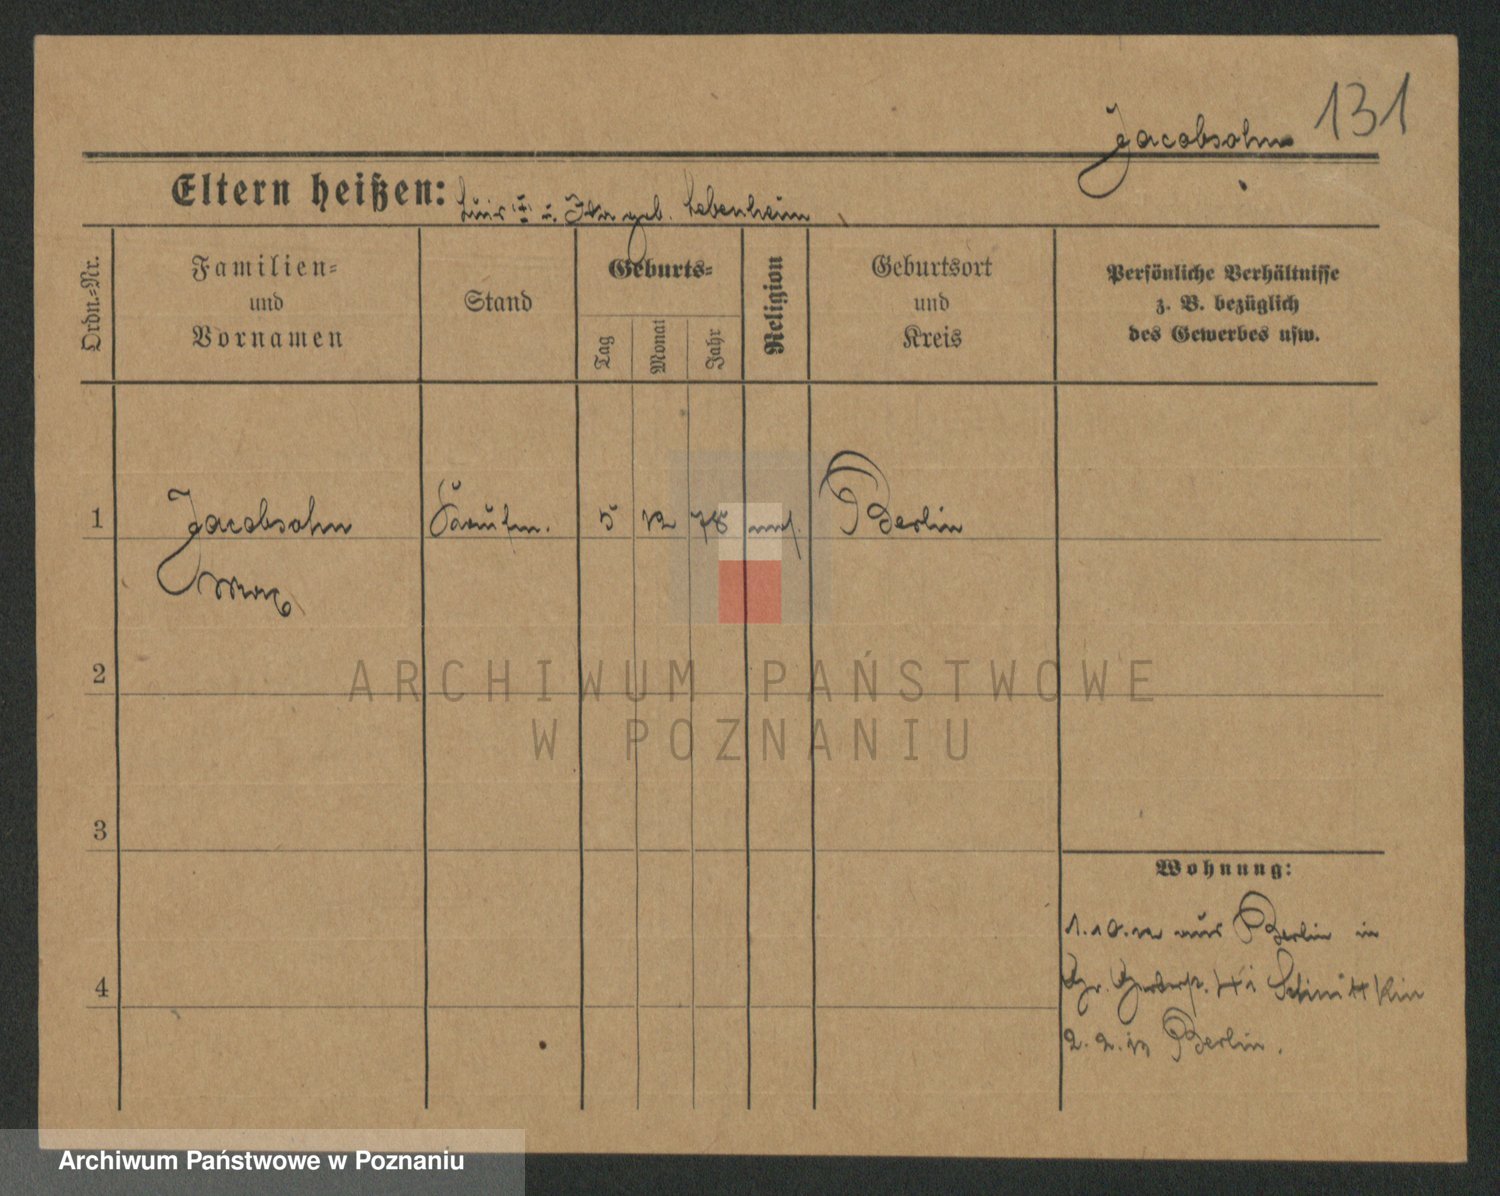 131
Jacobsohn
Eltern heißen: Luis † u. Ida geb. Lebenheim
Ordn.-Nr.
Familien-
und
Vornamen
Stand
Geburts-
Tag
Monat
Jahr
Religion
Geburtsort
und
Kreis
Persönliche Verhältnisse
z. B. bezüglich
des Gewerbes usw.
1
Jacobsohn
Max
Kaufm.
5
12
78
mos.
Berlin
2
3
4
ARCHIWUM PAŃSTWOWE
W POZNANIU
Wohnung:
1.10.12 aus Berlin in
Gr. Gerberst. bei
2.2.13 Berlin.
Archiwum Państwowe w Poznaniu